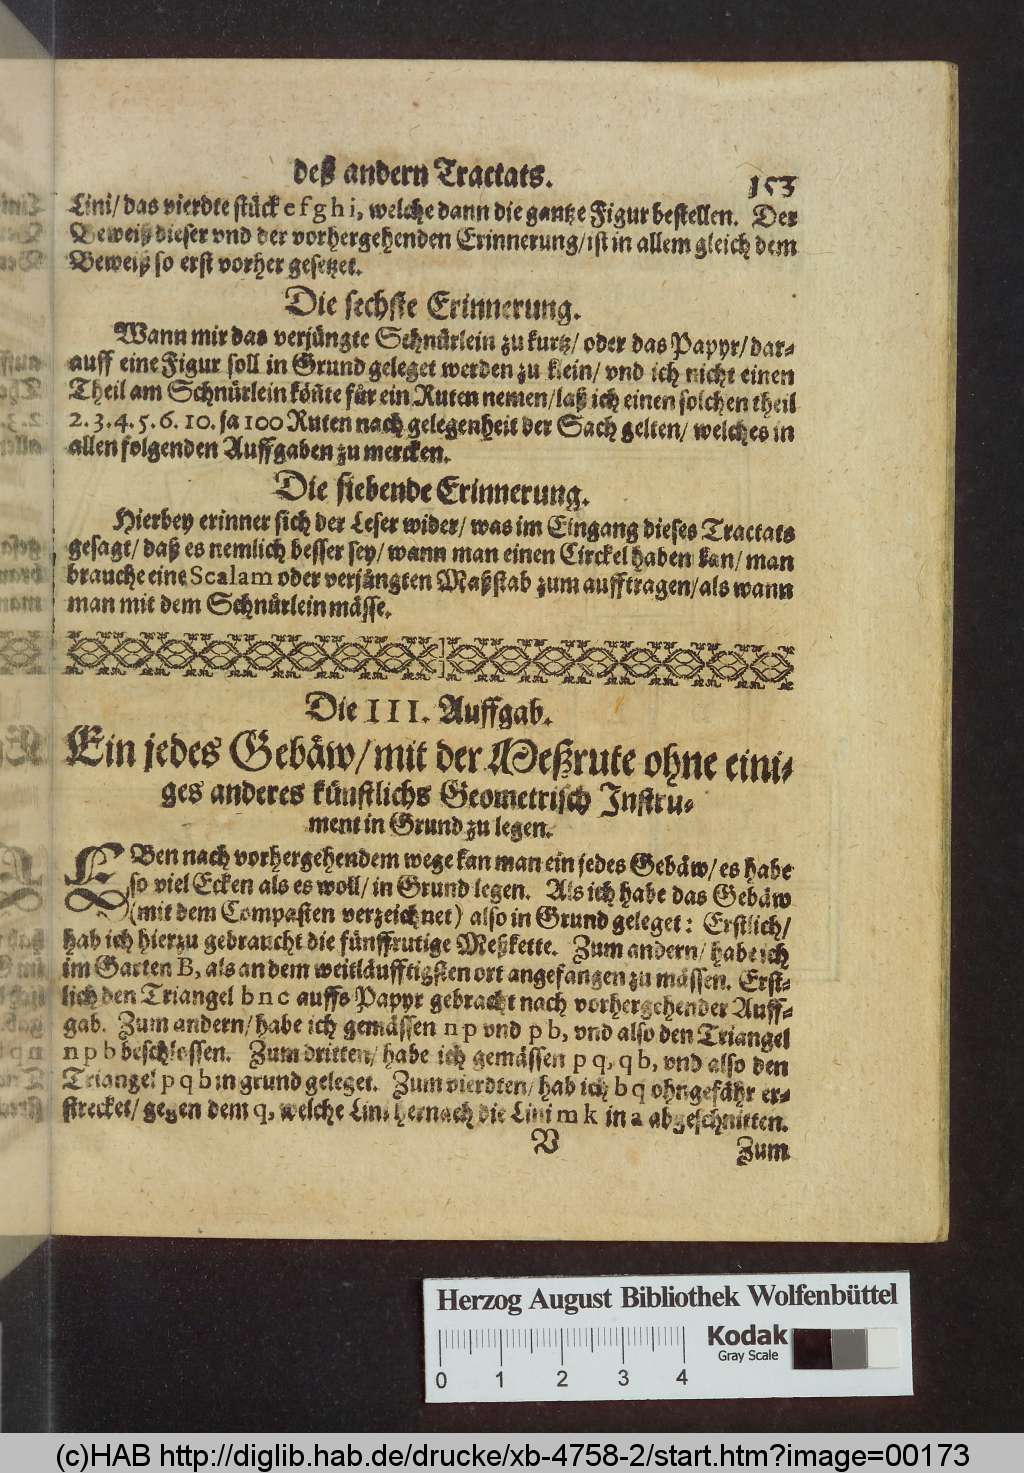 deß andern Tractats.
153
Lini/ das vierdte stück e f g h i, welche dann die gantze Figur bestellen. Der
Beweiß dieser vnd der vorhergehenden Erinnerung/ ist in allem gleich dem
Beweiß so erst vorher gesetzet.
Die sechste Erinnerung.
Wann mir das verjüngte Schnürlein zu kurtz/ oder das Papyr/ dar-
auff eine Figur soll in Grund geleget werden zu klein/ vnd ich nicht einen
Theil am Schnürlein kön̄te für ein Ruten nemen/ laß ich einen solchen theil
2. 3. 4. 5. 6. 10. ja 100 Ruten nach gelegenheit der Sach gelten/ welches in
allen folgenden Auffgaben zu mercken.
Die siebende Erinnerung.
Hierbey erinner sich der Leser wider/ was im Eingang dieses Tractats
gesagt/ daß es nemlich besser sey/ wann man einen Circkel haben kan/ man
brauche eine Scalam oder verjüngten Maßstab zum aufftragen/ als wann
man mit dem Schnürlein mässe.
Die III. Auffgab.
Ein jedes Gebäw/ mit der Meßrute ohne eini-
ges anderes künstlichs Geometrisch Instru-
ment in Grund zu legen.
EBen nach vorhergehendem wege kan man ein jedes Gebäw/ es habe
so viel Ecken als es woll/ in Grund legen. Als ich habe das Gebäw
(mit dem Compasten verzeichnet) also in Grund geleget: Erstlich/
hab ich hierzu gebraucht die fünffrutige Meßkette. Zum andern/ habe ich
im Garten B, als an dem weitläufftigsten ort angefangen zu mässen. Erst-
lich den Triangel b n c auffs Papyr gebracht nach vorhergehender Auff-
gab. Zum andern/ habe ich gemässen n p vnd p b, vnd also den Triangel
n p b beschlossen. Zum dritten/ habe ich gemässen p q, q b, vnd also den
Triangel p q b in grund geleget. Zum vierdten/ hab ich b q ohngefähr er-
strecket/ gegen dem q, welche Lini hernach die Lini m k in a abgeschnitten.
V
Zum
Herzog August Bibliothek Wolfenbüttel
Kodak
Gray Scale
0 1 2 3 4
(c)HAB http://diglib.hab.de/drucke/xb-4758-2/start.htm?image=00173